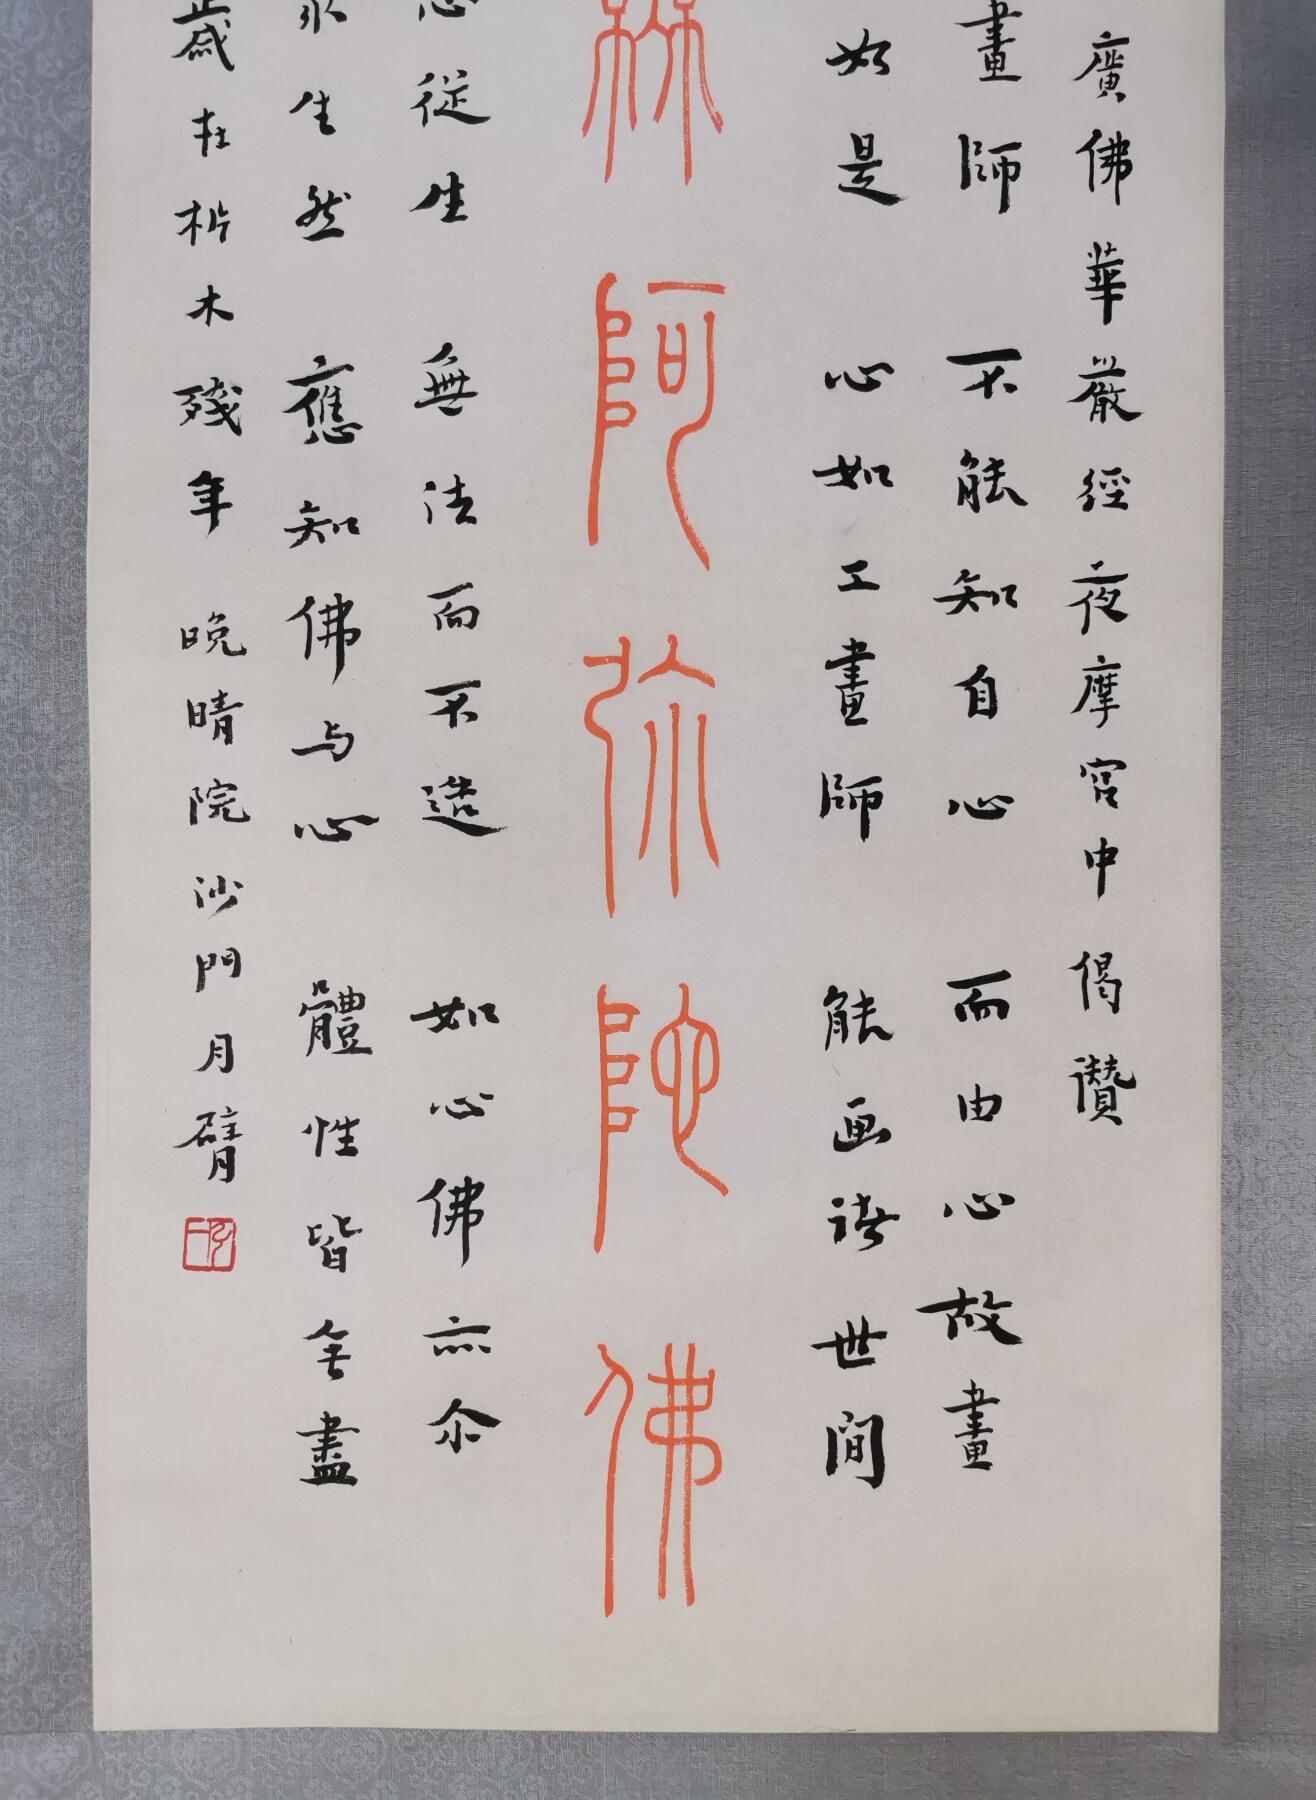 廣佛華嚴經夜摩宮中偈讚
畫師 不能知自心 而由心故畫
如是 心如工畫師 能画諸世間
無阿彌陀佛
心從生 無法而不造 如心佛亦尒
众生然 應知佛与心 體性皆無盡
歲在析木殘年 晚晴院沙門月臂